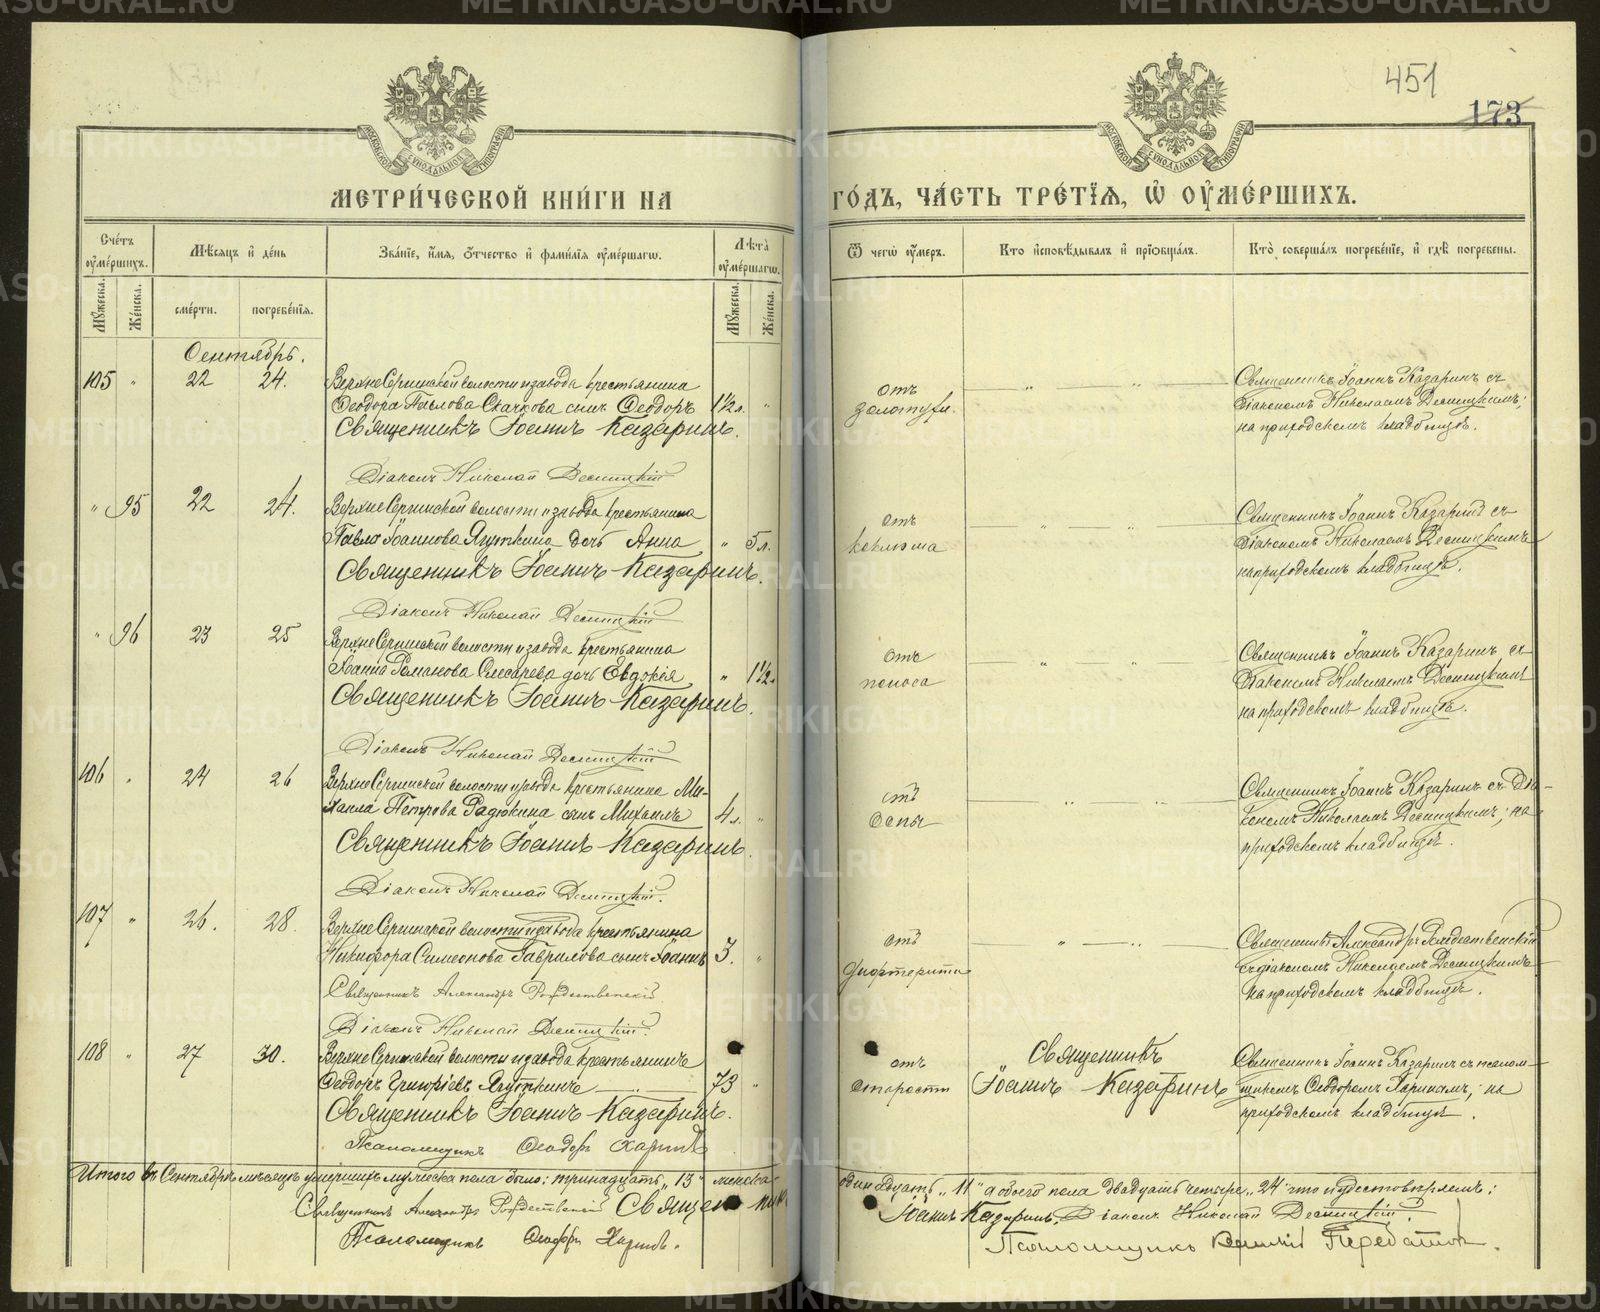 451
173
МЕТРИ́ЧЕСКОЙ КНИ́ГИ НА
ГО́ДЪ, ЧА́СТЬ ТРЕ́ТІЯ, Ѽ ОУМЕ́РШИХЪ.
Сче́тъ оуме́ршихъ.
Мѣ́сяцъ и де́нь
Зва́ніе, и́мя, о́тчество и фами́лія оуме́ршагѡ.
Лѣта̀ оуме́ршагѡ.
Ѿ чегѡ̀ оу́меръ.
Кто̀ исповѣ́дывалъ и пріѡбща́лъ.
Кто̀ соверша́лъ погребе́ніе, и гдѣ̀ погребены.
Му́жеска.
Же́нска.
сме́рти.
погребе́нія.
Му́жеска.
Же́нска.
Сентябрь.
105 " 22 24. Верхне Сергинской волости и завода крестьянина
Ѳеодора Павлова Скачкова сынъ Ѳеодоръ 1½ л. "
Священникъ Іоаннъ Казаринъ.
Діаконъ Николай Десницкій
отъ
золотухи.
Священникъ Іоаннъ Казаринъ съ
діакономъ Николаемъ Десницкимъ;
на приходскомъ кладбищѣ.
" 95 22 24. Верхне Сергинской волости и завода крестьянина
Павла Іоаннова Ягуткина дочь Анна " 5 л.
Священникъ Іоаннъ Казаринъ.
Діаконъ Николай Десницкій
отъ
коклюша
Священникъ Іоаннъ Казаринъ съ
діакономъ Николаемъ Десницкимъ
на приходскомъ кладбищѣ.
" 96 23 25 Верхне Сергинской волости и завода крестьянина
Іоанна Романова Слесарева дочь Евдокія " 1½
Священникъ Іоаннъ Казаринъ.
Діаконъ Николай Десницкій
отъ
поноса
Священникъ Іоаннъ Казаринъ съ
діакономъ Николаемъ Десницкимъ
на приходскомъ кладбищѣ.
106 " 24 26 Верхне Сергинской волости и завода крестьянина Ми-
хаила Петрова Радюкина сынъ Михаилъ 4 л. "
Священникъ Іоаннъ Казаринъ.
Діаконъ Николай Десницкій.
отъ
оспы
Священникъ Іоаннъ Казаринъ съ діа-
кономъ Николаемъ Десницкимъ; на
приходскомъ кладбищѣ.
107 " 26. 28. Верхне Сергинской волости и завода крестьянина
Никифора Симеонова Гаврилова сынъ Іоаннъ 3. "
Священникъ Александръ Рождественскій
Діаконъ Николай Десницкій.
отъ
дифтерита
Священникъ Александръ Рождественскій
съ діакономъ Николаемъ Десницкимъ
на приходскомъ кладбищѣ.
108 " 27 30. Верхне Сергинской волости и завода крестьянинъ
Ѳеодоръ Григоріевъ Ягуткинъ 73 "
Священникъ Іоаннъ Казаринъ.
Псаломщикъ Ѳеодоръ
отъ
старости
Священникъ
Іоаннъ Казаринъ
Священникъ Іоаннъ Казаринъ съ псалом-
щикомъ Ѳеодоромъ; на
приходскомъ кладбищѣ.
Итого въ Сентябрѣ мѣсяцѣ умершихъ мужеска пола было: тринадцать "13" женска-
одиннадцать "11" а обоего пола двадцать четыре "24" что и удостовѣряемъ:
Священникъ Александръ Рождественскій Священникъ
Іоаннъ Казаринъ. Діаконъ Николай Десницкій.
Псаломщикъ Ѳеодоръ
Псаломщикъ
METRIKI.GASO-URAL.RU